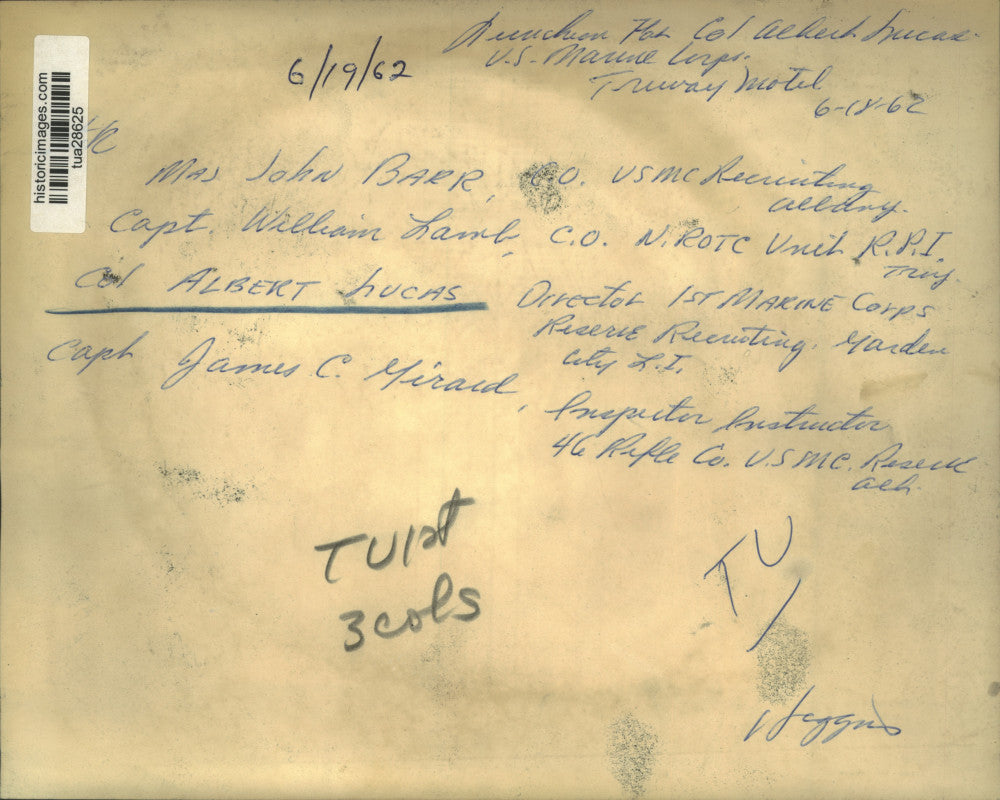 historicimages.com
tua28625
6/19/62
Luncheon For Col Albert Lucas
U.S. Marine Corps.
Truway Motel
6-18-62
LR
Maj John Barr, C.O. USMC Recruiting
Albany.
Capt. William Lamb, C.O. N.ROTC Unit R.P.I.
Troy.
Col ALBERT LUCAS Director 1st MARINE Corps
Reserve Recruiting. Garden
City L.I.
Capt James C. Girard, Inspector Instructor
46 Rifle Co. U.S MC. Reserve
Alb.
TU 1st
3 cols
TU